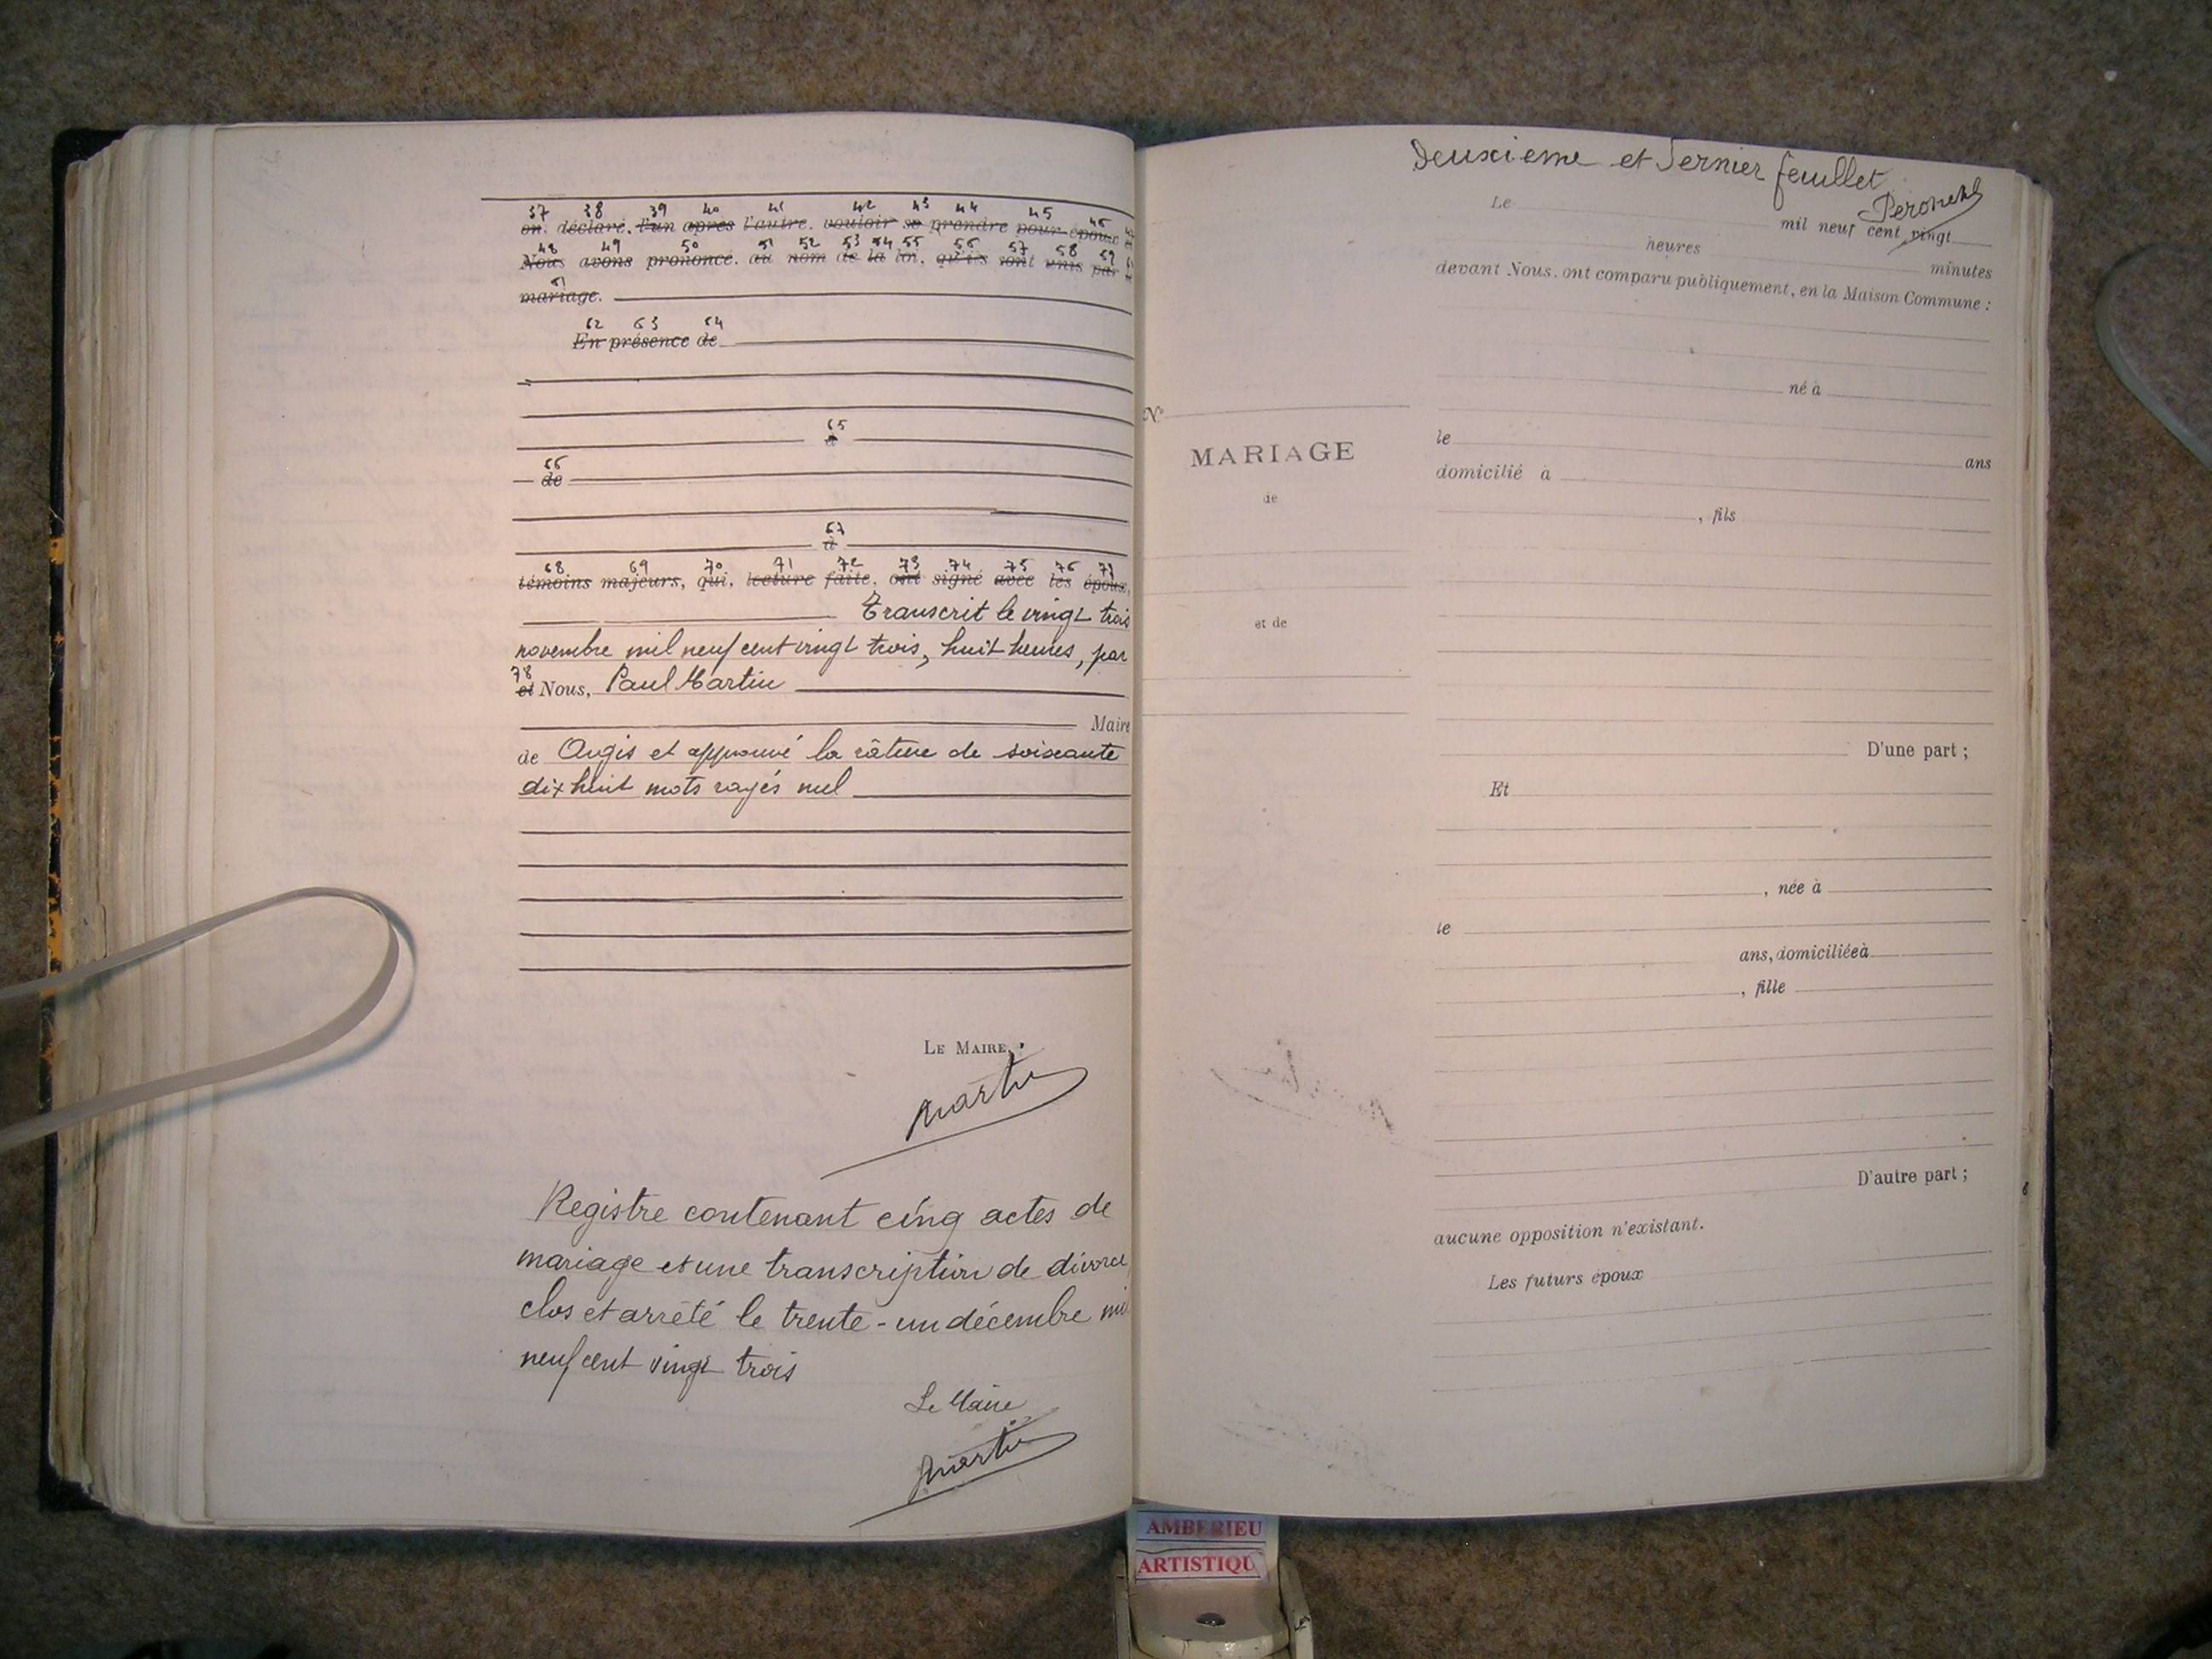 37 38 39 40 41 42 43 44 45 46
on. déclaré, l'un après l'autre, vouloir se prendre pour époux
48 49 50 51 52 53 54 55 56 57 58 59
Nous avons prononcé, au nom de la loi, qu'ils sont unis par
61
mariage.
62 63 64
En présence de
65
à
66
de
67
à
68 69 70 71 72 73 74 75 76 77
témoins majeurs, qui, lecture faite, ont signé avec les époux,
Transcrit le vingt trois
novembre mil neuf cent vingt trois, huit heures, par
78
et Nous, Paul Martin
Maire
de Orgis et approuvé la râture de soixante
dix huit mots rayés nul
LE MAIRE,
Martin
Registre contenant cinq actes de
mariage et une transcription de divorce
clos et arrêté le trente-un décembre mil
neuf cent vingt trois
Le Maire
Martin
Deuxieme et Dernier feuillet
Le
mil neuf cent vingt
heures
minutes
devant Nous, ont comparu publiquement, en la Maison Commune :
né à
N°
le
ans
MARIAGE
domicilié à
de
, fils
et de
D'une part ;
Et
, née à
le
ans, domiciliée à
, fille
D'autre part ;
aucune opposition n'existant.
Les futurs époux
AMBERIEU
ARTISTIQU